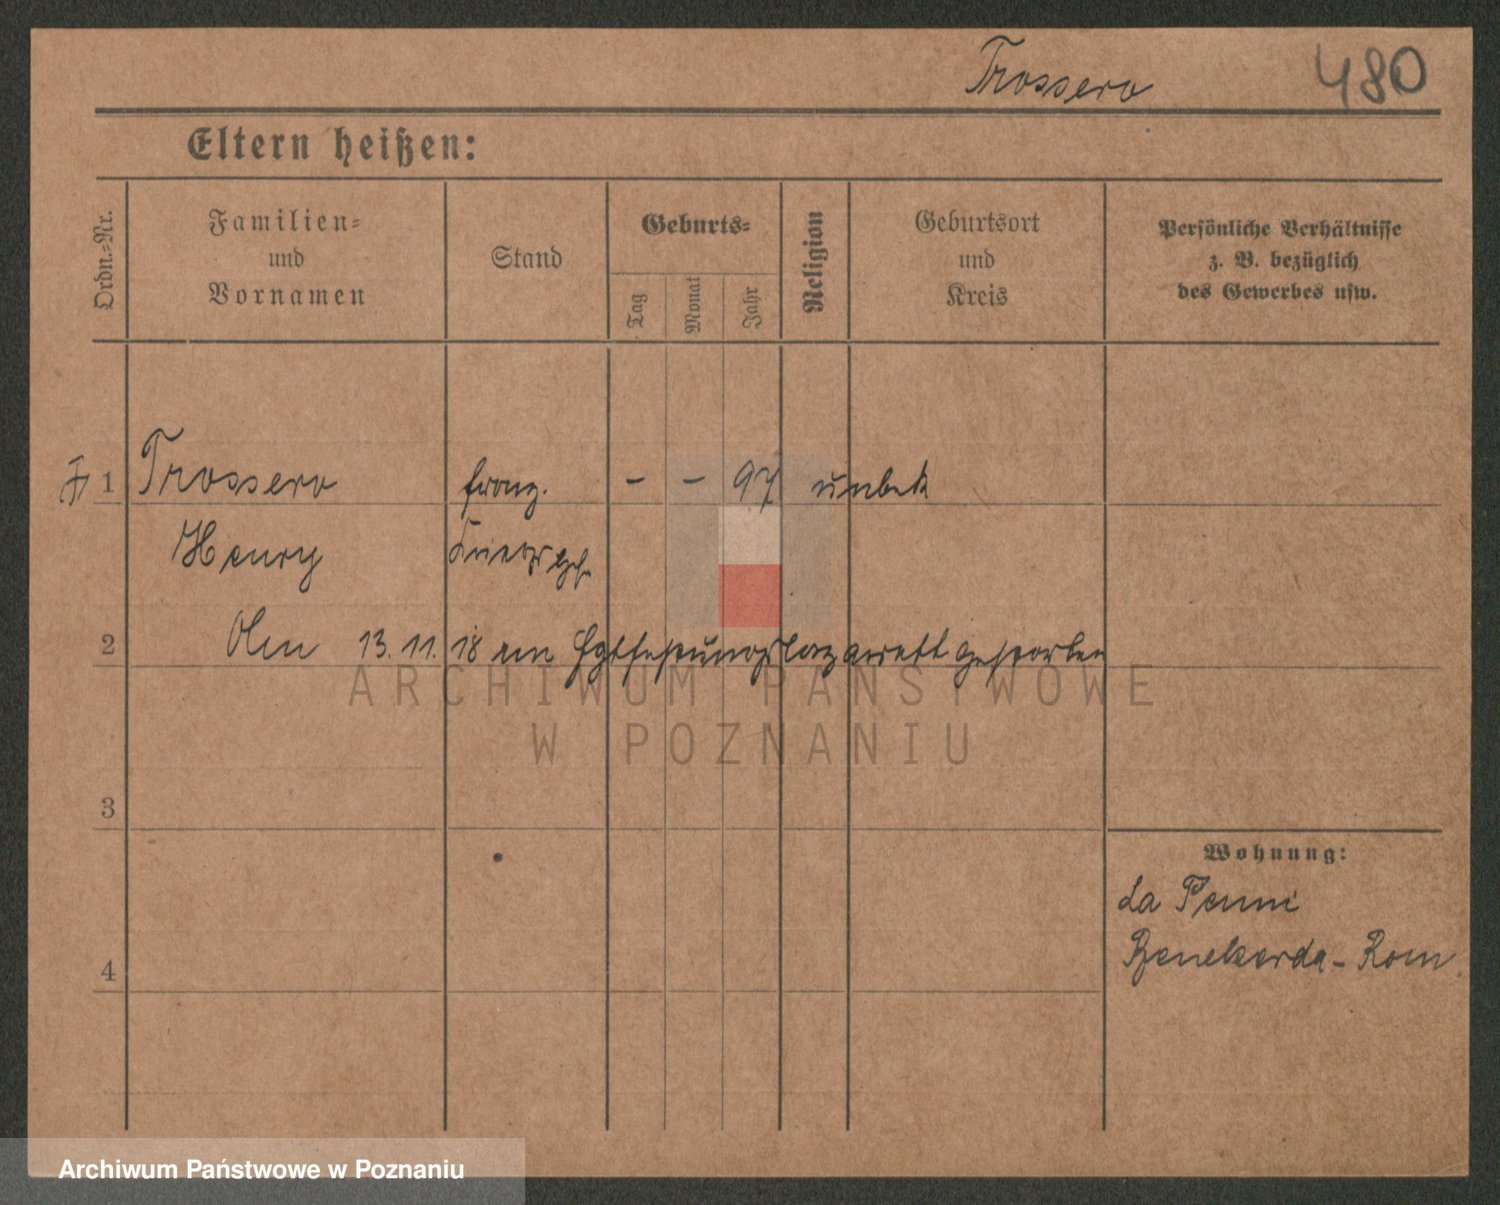 Trossero 480
Eltern heißen:
Ordn.-Nr.
Familien- und Vornamen
Stand
Geburts-
Tag
Monat
Jahr
Religion
Geburtsort und Kreis
Persönliche Verhältnisse
z. B. bezüglich
des Gewerbes usw.
1 Trossero franz. - - 97 unbek
Henry Kriegsgef.
2 Am 13.11.18 im Festungslazarett gestorben
ARCHIWUM PAŃSTWOWE
W POZNANIU
3
Wohnung:
La Penni
4 - Rom
Archiwum Państwowe w Poznaniu